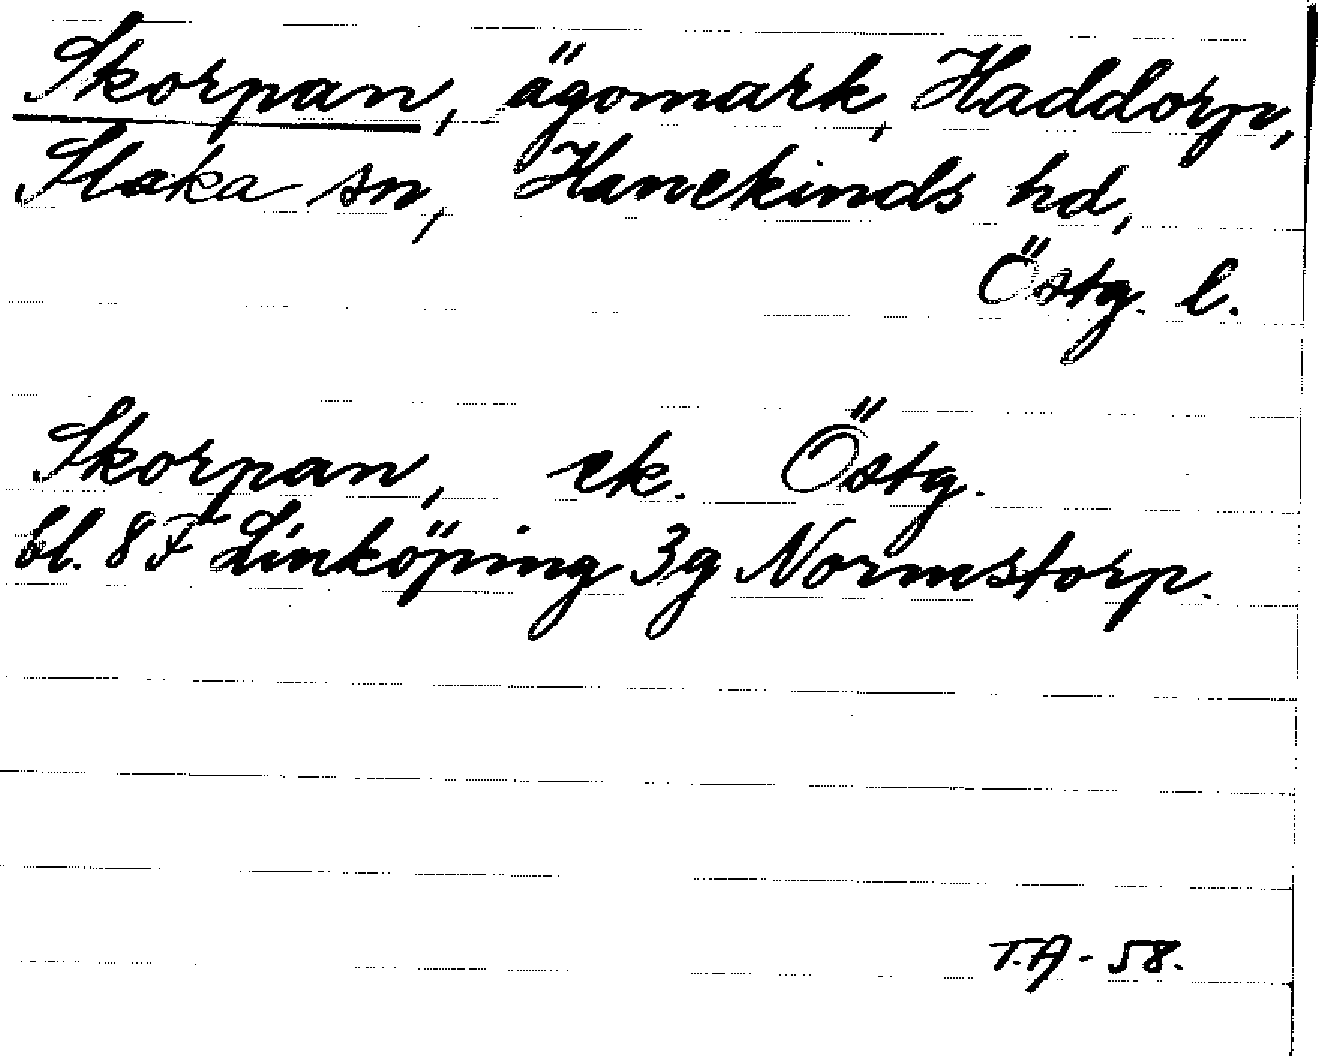 Skorpan, ägomark, Haddorp,
Slaka sn, Hanekinds hd,
Östg. l.
Skorpan, ek. Östg.
bl. 8F Linköping 3g Normstorp.
T.A - 58.